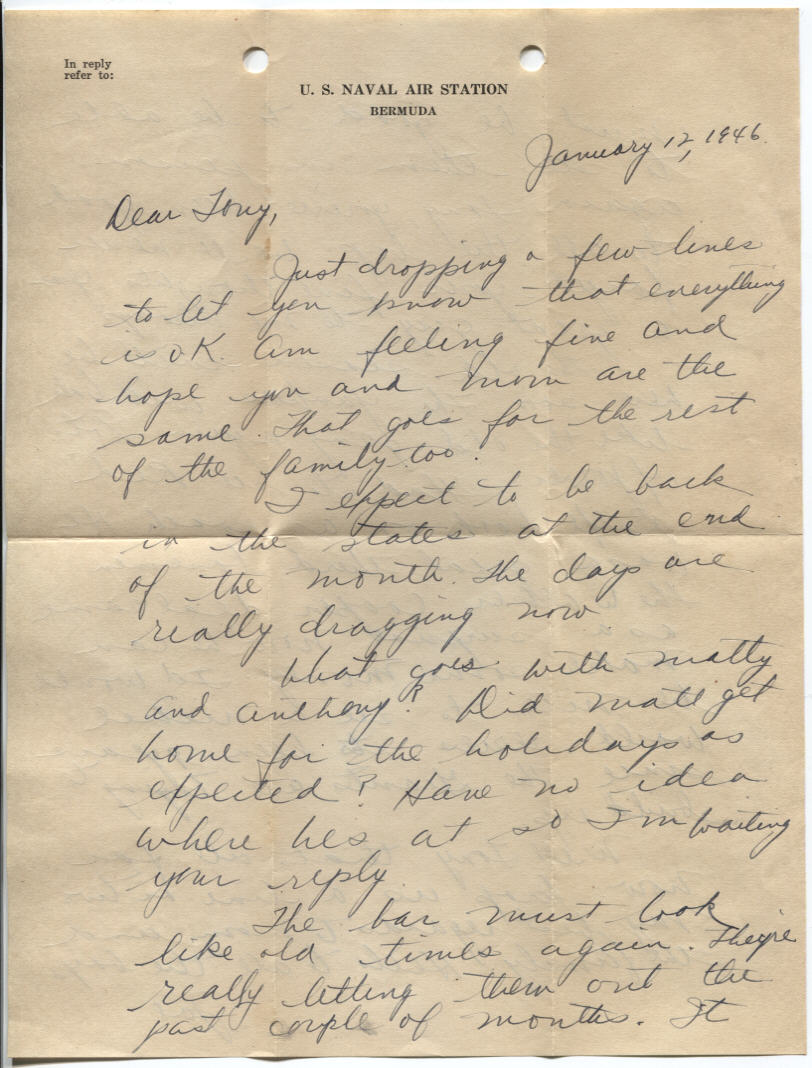 In reply
refer to:
U. S. NAVAL AIR STATION
BERMUDA
January 12, 1946.
Dear Tony,
Just dropping a few lines
to let you know that everything
is OK. Am feeling fine and
hope you and mom are the
same. That goes for the rest
of the family too.
I expect to be back
in the states at the end
of the month. The days are
really dragging now.
What goes with Matty
and Anthony? Did Matt get
home for the holidays as
expected? Have no idea
where hes at so I'm waiting
your reply
The bar must look
like old times again. They're
really letting them out the
past couple of months. It